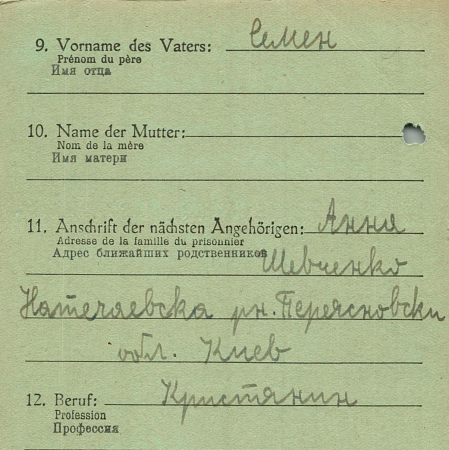 9. Vorname des Vaters: Семен
Prénom du père
Имя отца
10. Name der Mutter:
Nom de la mère
Имя матери
11. Anschrift der nächsten Angehörigen: Анна
Adresse de la famille du prisonnier
Адрес ближайших родственников Шевченко
рн. Переясновски
обл. Киев
12. Beruf: Кристянин
Profession
Профессия